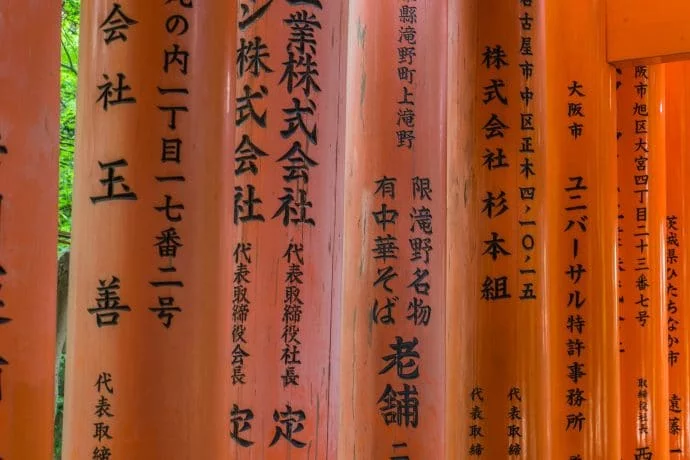 丸の内一丁目一七番二号
会社玉善
代表取締
業株式会社
代表取締役社長
定
株式会社
代表取締役会長
定
縣滝野町上滝野
限滝野名物
有中華そば
老舗
二
古屋市中区正木四ノ一〇ノ一五
株式会社杉本組
代表取締
代表取締
大阪市
ユニバーサル特許事務所
阪市旭区大宮四丁目二十三番七号
取締役社長
西
茨城県ひたちなか市
遠藤